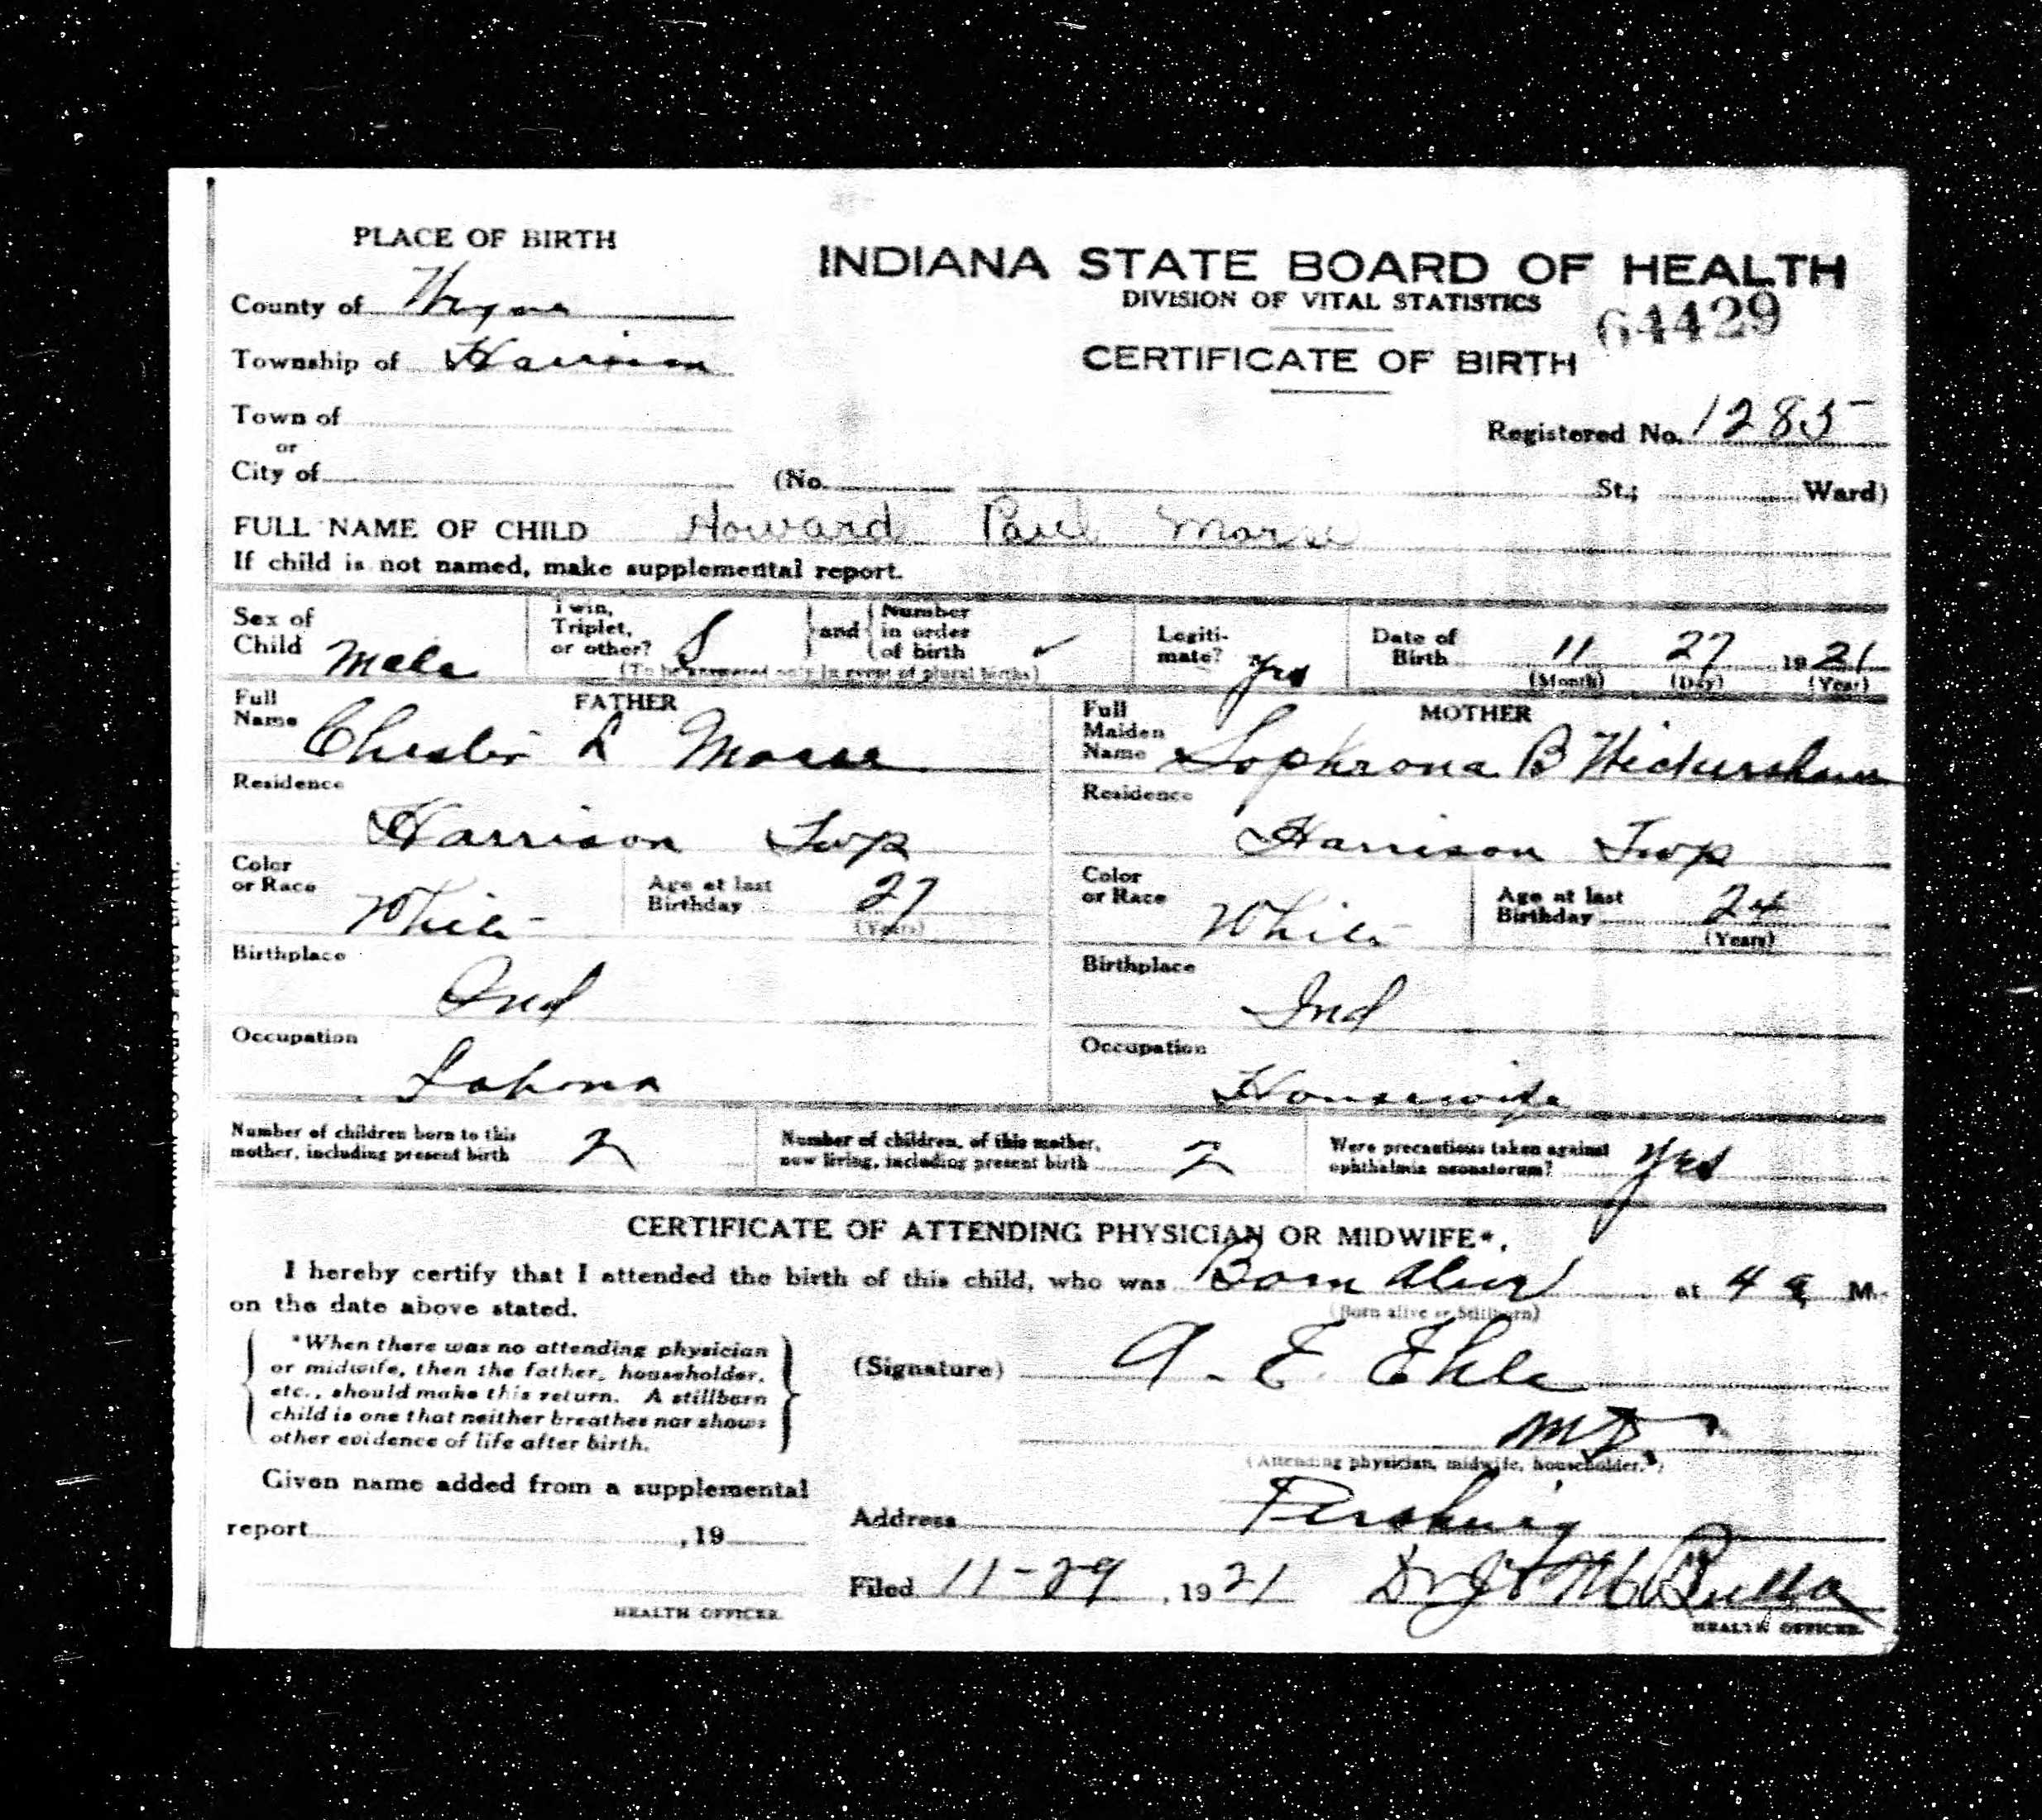 PLACE OF BIRTH
INDIANA STATE BOARD OF HEALTH
DIVISION OF VITAL STATISTICS
64429
CERTIFICATE OF BIRTH
County of Wayne
Township of Harrison
Town of
or
City of (No. St.; Ward)
Registered No. 1285
FULL NAME OF CHILD Howard Paul Morse
If child is not named, make supplemental report.
Sex of Child Male
Twin, Triplet, or other? S and Number in order of birth ✓
(To be answered only in event of plural births)
Legitimate? Yes
Date of Birth 11 27 1921
(Month) (Day) (Year)
FATHER
Full Name Chester L Morse
Residence
Harrison Twp
Color or Race White
Age at last Birthday 27
(Years)
Birthplace
Ind
Occupation
MOTHER
Full Maiden Name Sophrona B
Residence
Harrison Twp
Color or Race White
Age at last Birthday 24
(Years)
Birthplace
Ind
Occupation
Housewife
Number of children born to this mother, including present birth 2
Number of children, of this mother, now living, including present birth 2
Were precautions taken against ophthalmia neonatorum? Yes
CERTIFICATE OF ATTENDING PHYSICIAN OR MIDWIFE*.
I hereby certify that I attended the birth of this child, who was Born alive at 4 a M.
(Born alive or Stillborn)
on the date above stated.
*When there was no attending physician
or midwife, then the father, householder,
etc., should make this return. A stillborn
child is one that neither breathes nor shows
other evidence of life after birth.
(Signature) A. E. Ehle
MD.
(Attending physician, midwife, householder.*)
Given name added from a supplemental
report , 19
HEALTH OFFICER.
Address Pershing
Filed 11-29, 1921 Dr
HEALTH OFFICER.